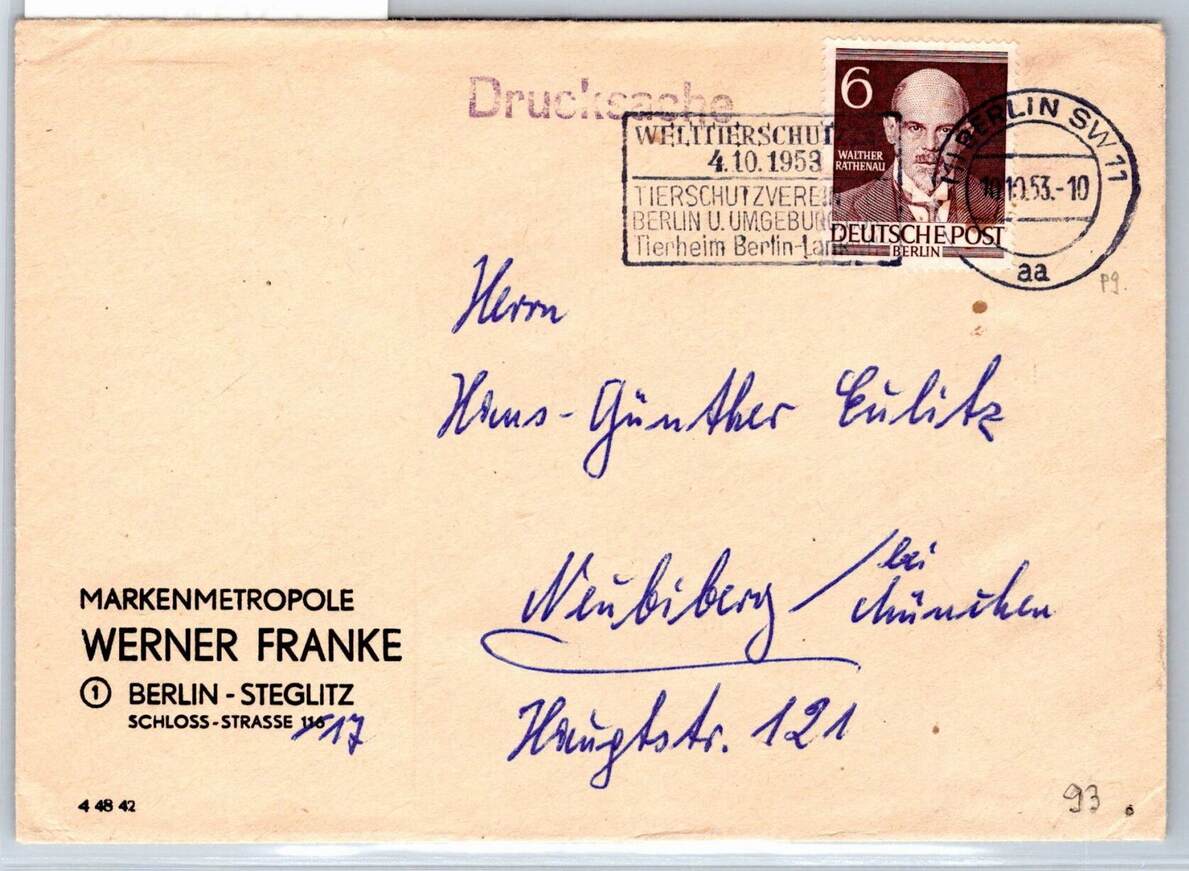 Drucksache
WELTTIERSCHUTZ
4.10.1953
TIERSCHUTZVEREIN
BERLIN U. UMGEBUNG
Tierheim Berlin-Lank
6
WALTHER
RATHENAU
DEUTSCHE POST
BERLIN
BERLIN SW 11
10.53.-10
aa
Pg.
Herrn
Hans-Günther Eulitz
Neubiberg / bei
München
Hauptstr. 121
MARKENMETROPOLE
WERNER FRANKE
1 BERLIN - STEGLITZ
SCHLOSS-STRASSE 116 17
4 48 42
93
6